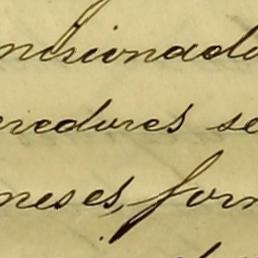 ncionado
eredores se
neses, for